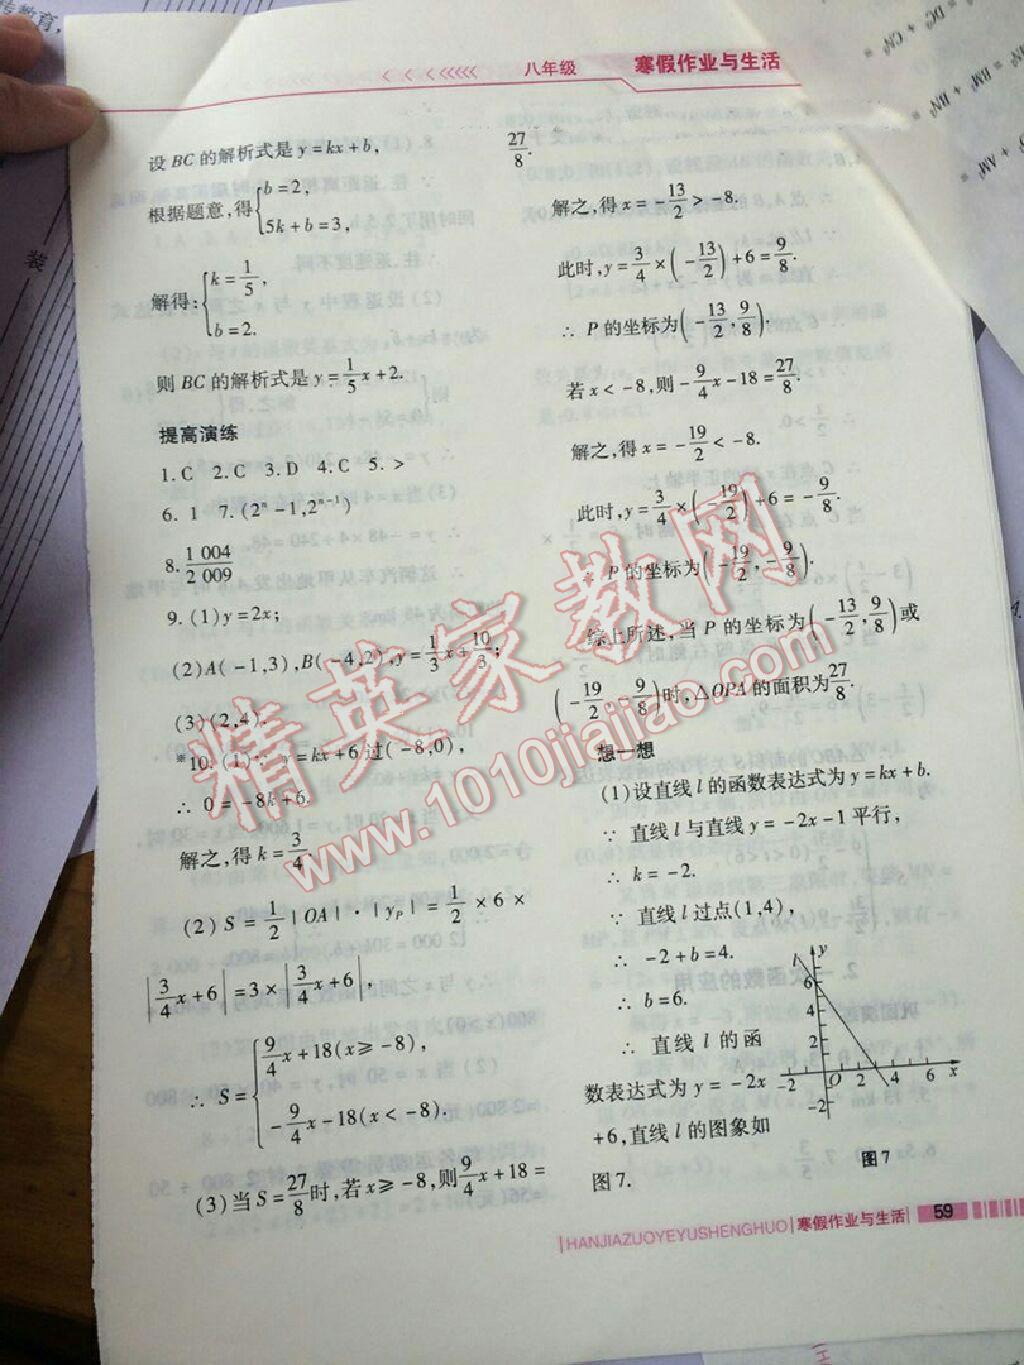 八年级 寒假作业与生活
设BC的解析式是y=kx+b,
根据题意,得{b=2,
5k+b=3,
解得:{k=1/5,
b=2.
则BC的解析式是y=1/5x+2.
提高演练
1.C 2.C 3.D 4.C 5.>
6.1 7.(2ⁿ-1,2ⁿ⁻¹)
8.1 004/2 009
9.(1)y=2x;
(2)A(-1,3),B(-4,2),y=1/3x+10/3;
(3)(2,4).
*10.(1)∵ y=kx+6过(-8,0),
∴ 0=-8k+6.
解之,得k=3/4.
(2)S=1/2|OA|·|y_P|=1/2×6×
|3/4x+6|=3×|3/4x+6|,
∴ S={9/4x+18(x≥-8),
-9/4x-18(x<-8).
(3)当S=27/8时,若x≥-8,则9/4x+18=
27/8.
解之,得x=-13/2>-8.
此时,y=3/4×(-13/2)+6=9/8.
∴ P的坐标为(-13/2,9/8).
若x<-8,则-9/4x-18=27/8.
解之,得x=-19/2<-8.
此时,y=3/4×(-19/2)+6=-9/8.
∴ P的坐标为(-19/2,-9/8).
综上所述,当P的坐标为(-13/2,9/8)或
(-19/2,-9/8)时,△OPA的面积为27/8.
想一想
(1)设直线l的函数表达式为y=kx+b.
∵ 直线l与直线y=-2x-1平行,
∴ k=-2.
∵ 直线l过点(1,4),
∴ -2+b=4.
∴ b=6.
∴ 直线l的函
数表达式为y=-2x
+6,直线l的图象如
图7.
l y
6
4
2
-2 O 2 4 6 x
-2
图7
HANJIAZUOYEYUSHENGHUO 寒假作业与生活 59
精英家教网
www.1010jiajiao.com
装